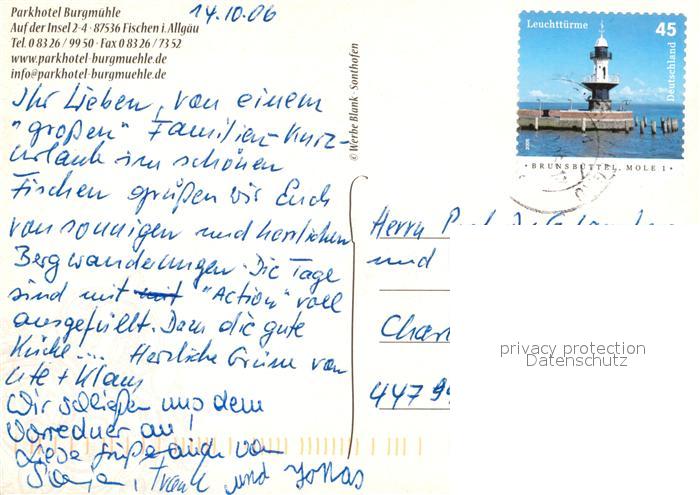 Parkhotel Burgmühle
Auf der Insel 2-4 · 87536 Fischen i. Allgäu
Tel. 0 83 26 / 99 50 · Fax 0 83 26 / 73 52
www.parkhotel-burgmuehle.de
info@parkhotel-burgmuehle.de
14.10.06
Ihr Lieben, von einem
"großen" Familien-Kurz-
urlaub im schönen
Fischen grüßen wir Euch
von sonnigen und herrlichen
Bergwanderungen. Die Tage
sind mit mit "Action" voll
ausgefüllt. Dazu die gute
Küche... Herzliche Grüße von
Ute + Klaus
Wir schließen uns dem
Vorredner an!
Liebe Grüße auch von
Frank und Jonas
© Werbe Blank · Sonthofen
Leuchttürme
45
Deutschland
2005
· BRUNSBÜTTEL, MOLE 1 ·
Herrn
und
447
privacy protection
Datenschutz